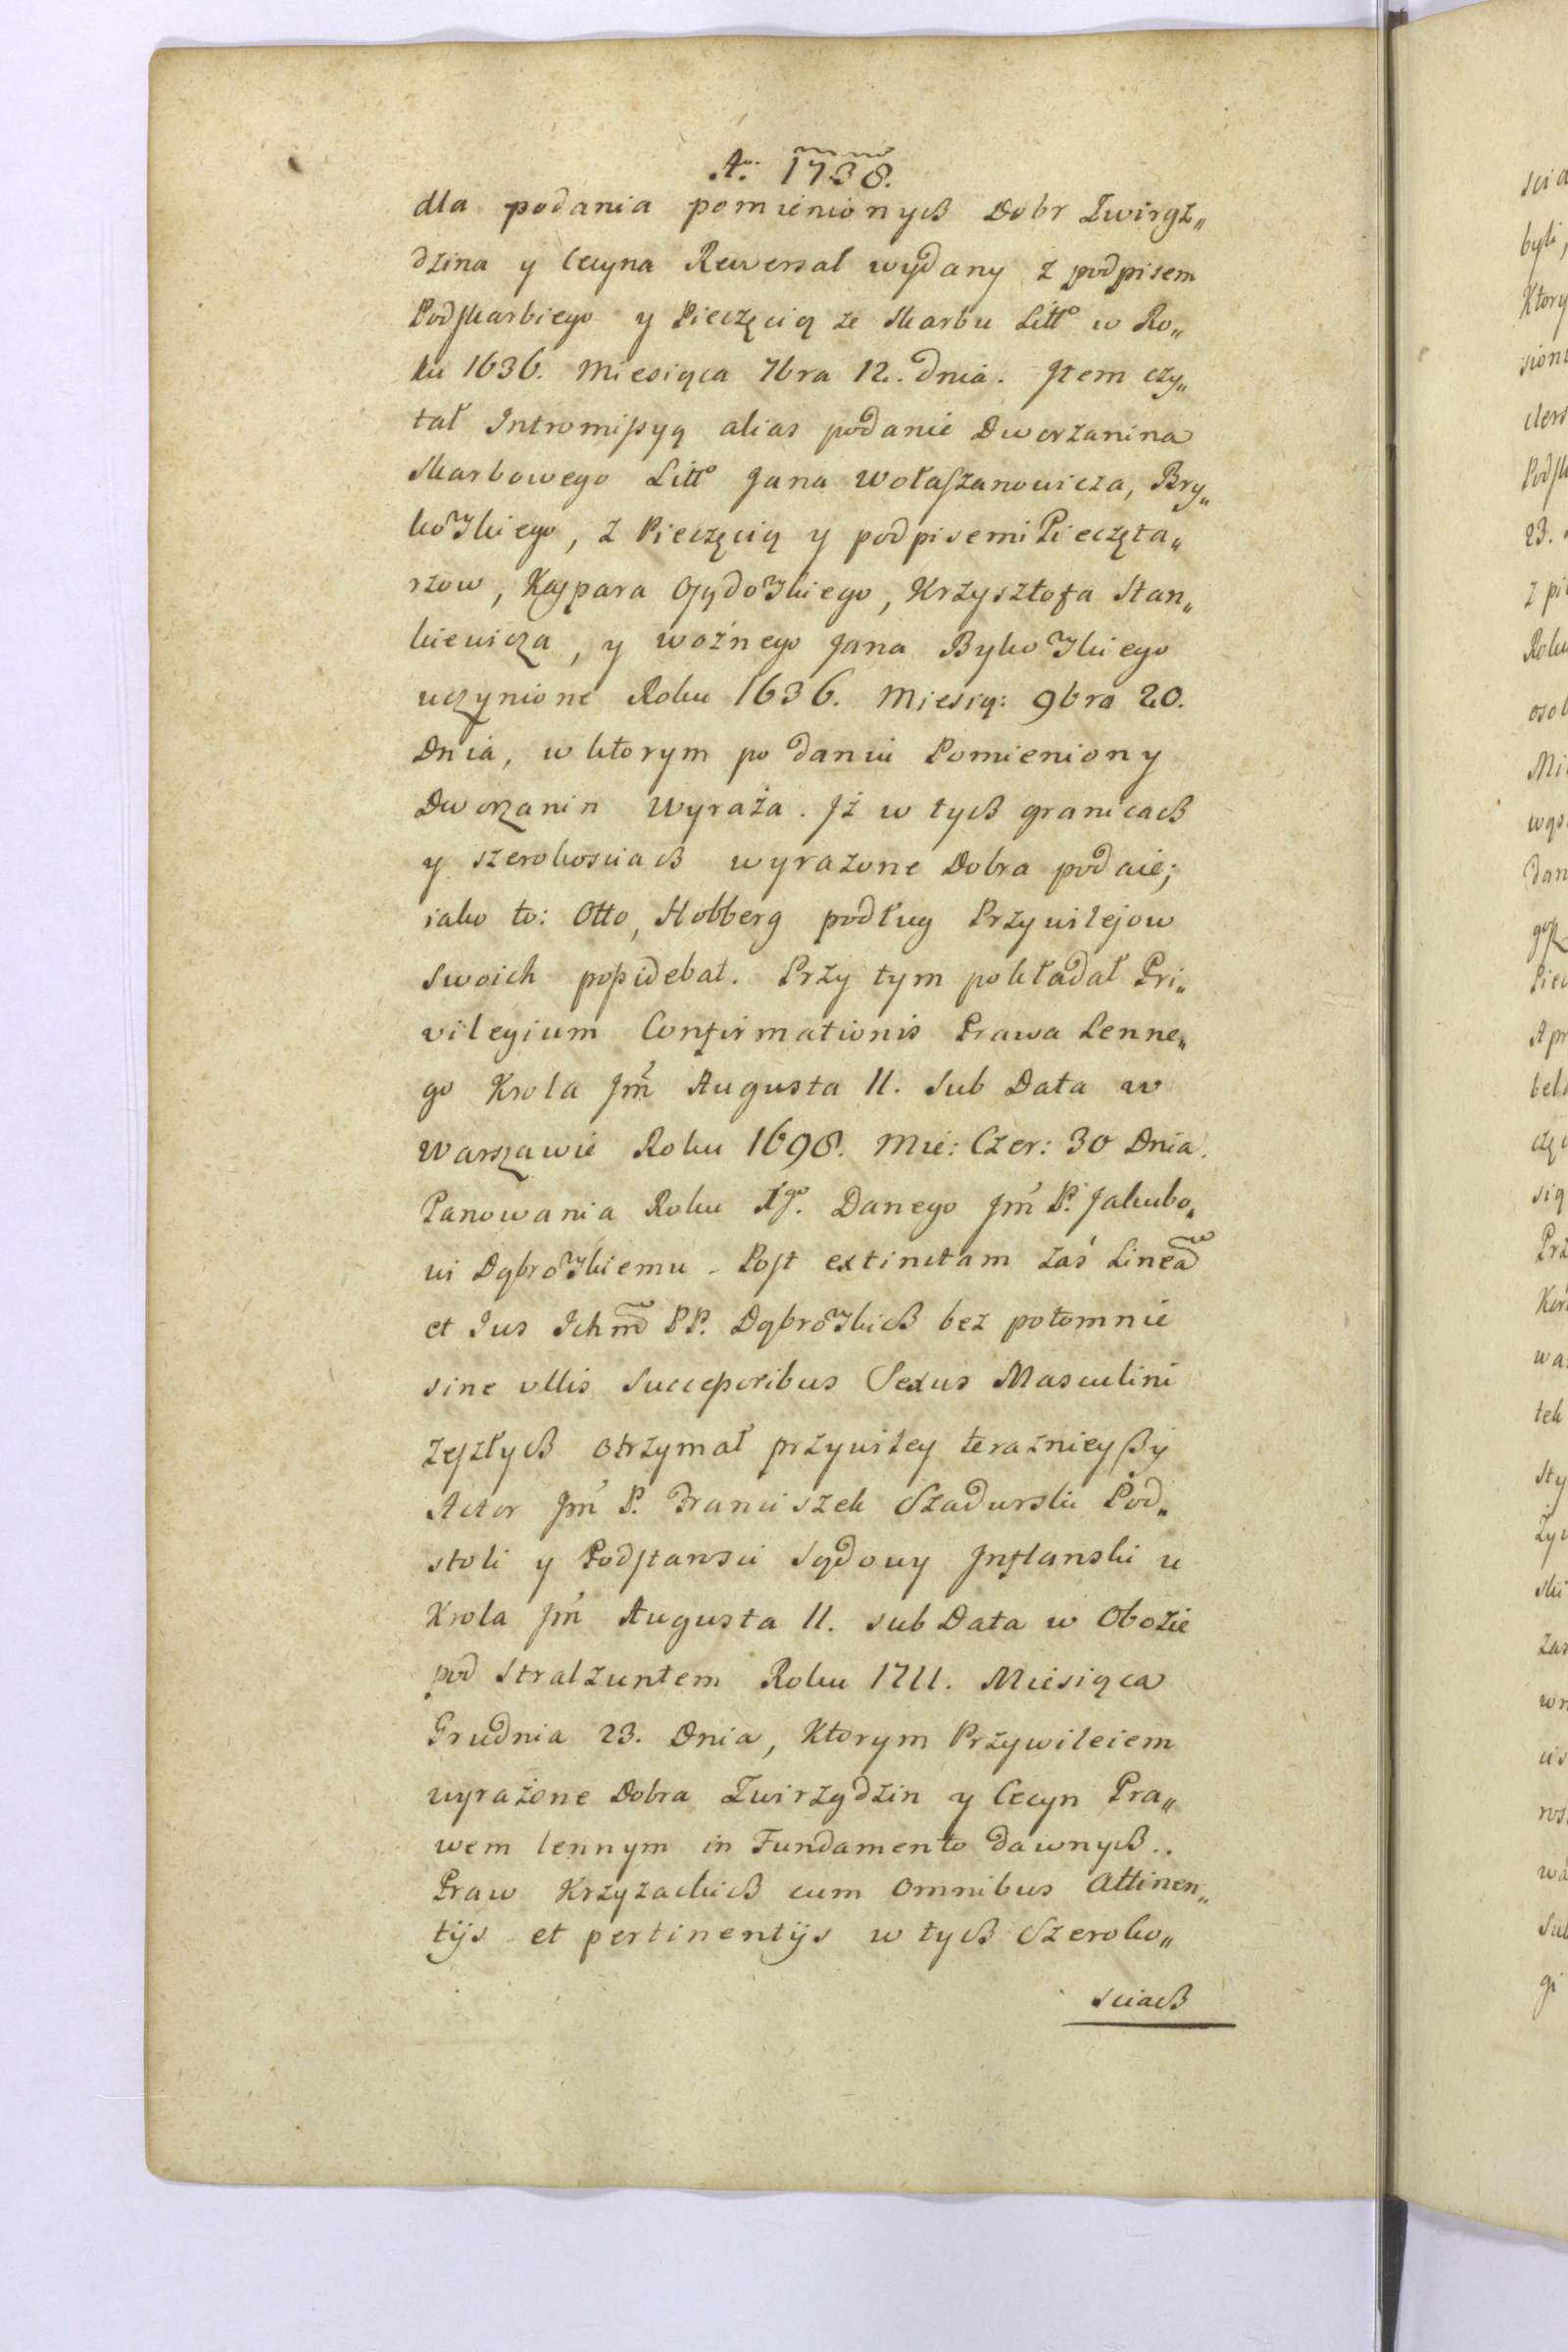 Ao. 1738.
dla podania pomienionych Dobr Zwirgz„
dzina y Cecyna Rewersał wydany z podpisem
Podskarbiego y Pieczęcią ze Skarbu Litto w Ro„
ku 1636. Miesiąca 7bra 12. dnia. Item czy„
tał Intromissyą alias podanie Dworzanina
Skarbowego Litto Jana Wołaszanowicza, Bry„
kowskiego, z Pieczęcią y podpisemi Pieczęta„
rzow, Kaspara Ogydowskiego, Krzysztofa Stan„
kiewicza, y woźnego Jana Bykowskiego
uczynione Roku 1636. Miesią: 9bra 20.
Dnia, w ktorym podaniu Pomieniony
Dworzanin wyraża. Iż w tych granicach
y szerokosciach wyrazone Dobra podaie;
iako to: Otto, Hobberg podług Przywilejow
swoich possidebat. Przy tym pokładał Pri„
vilegium Confirmationis Prawa Lenne„
go Krola Jm Augusta II. Sub Data w
Warszawie Roku 1698. Mie: Czer: 30 Dnia.
Panowania Roku 1go. Danego Jm P. Jakubo„
wi Dąbrowskiemu. Post extinctam zaś Linea
et Ius Ichm PP. Dąbrowskich bez potomnie
sine ullis Successoribus Sexus Masculini
zeszłych otrzymał przywiley teraznieyszy
Actor Jm P. Franciszek Szadurski Pod„
stoli y Podstarosci Sądowy Inflanski u
Krola Jm Augusta II. sub Data w Obozie
pod Stralzuntem Roku 1711. Miesiąca
Grudnia 23. Dnia, Ktorym Przywileiem
wyrażone Dobra Zwirzgdzin y Cecyn Pra„
wem lennym in Fundamento dawnych..
Praw Krzyzackich cum omnibus Attinen„
tijs et pertinentijs w tych Szeroko„
sciach